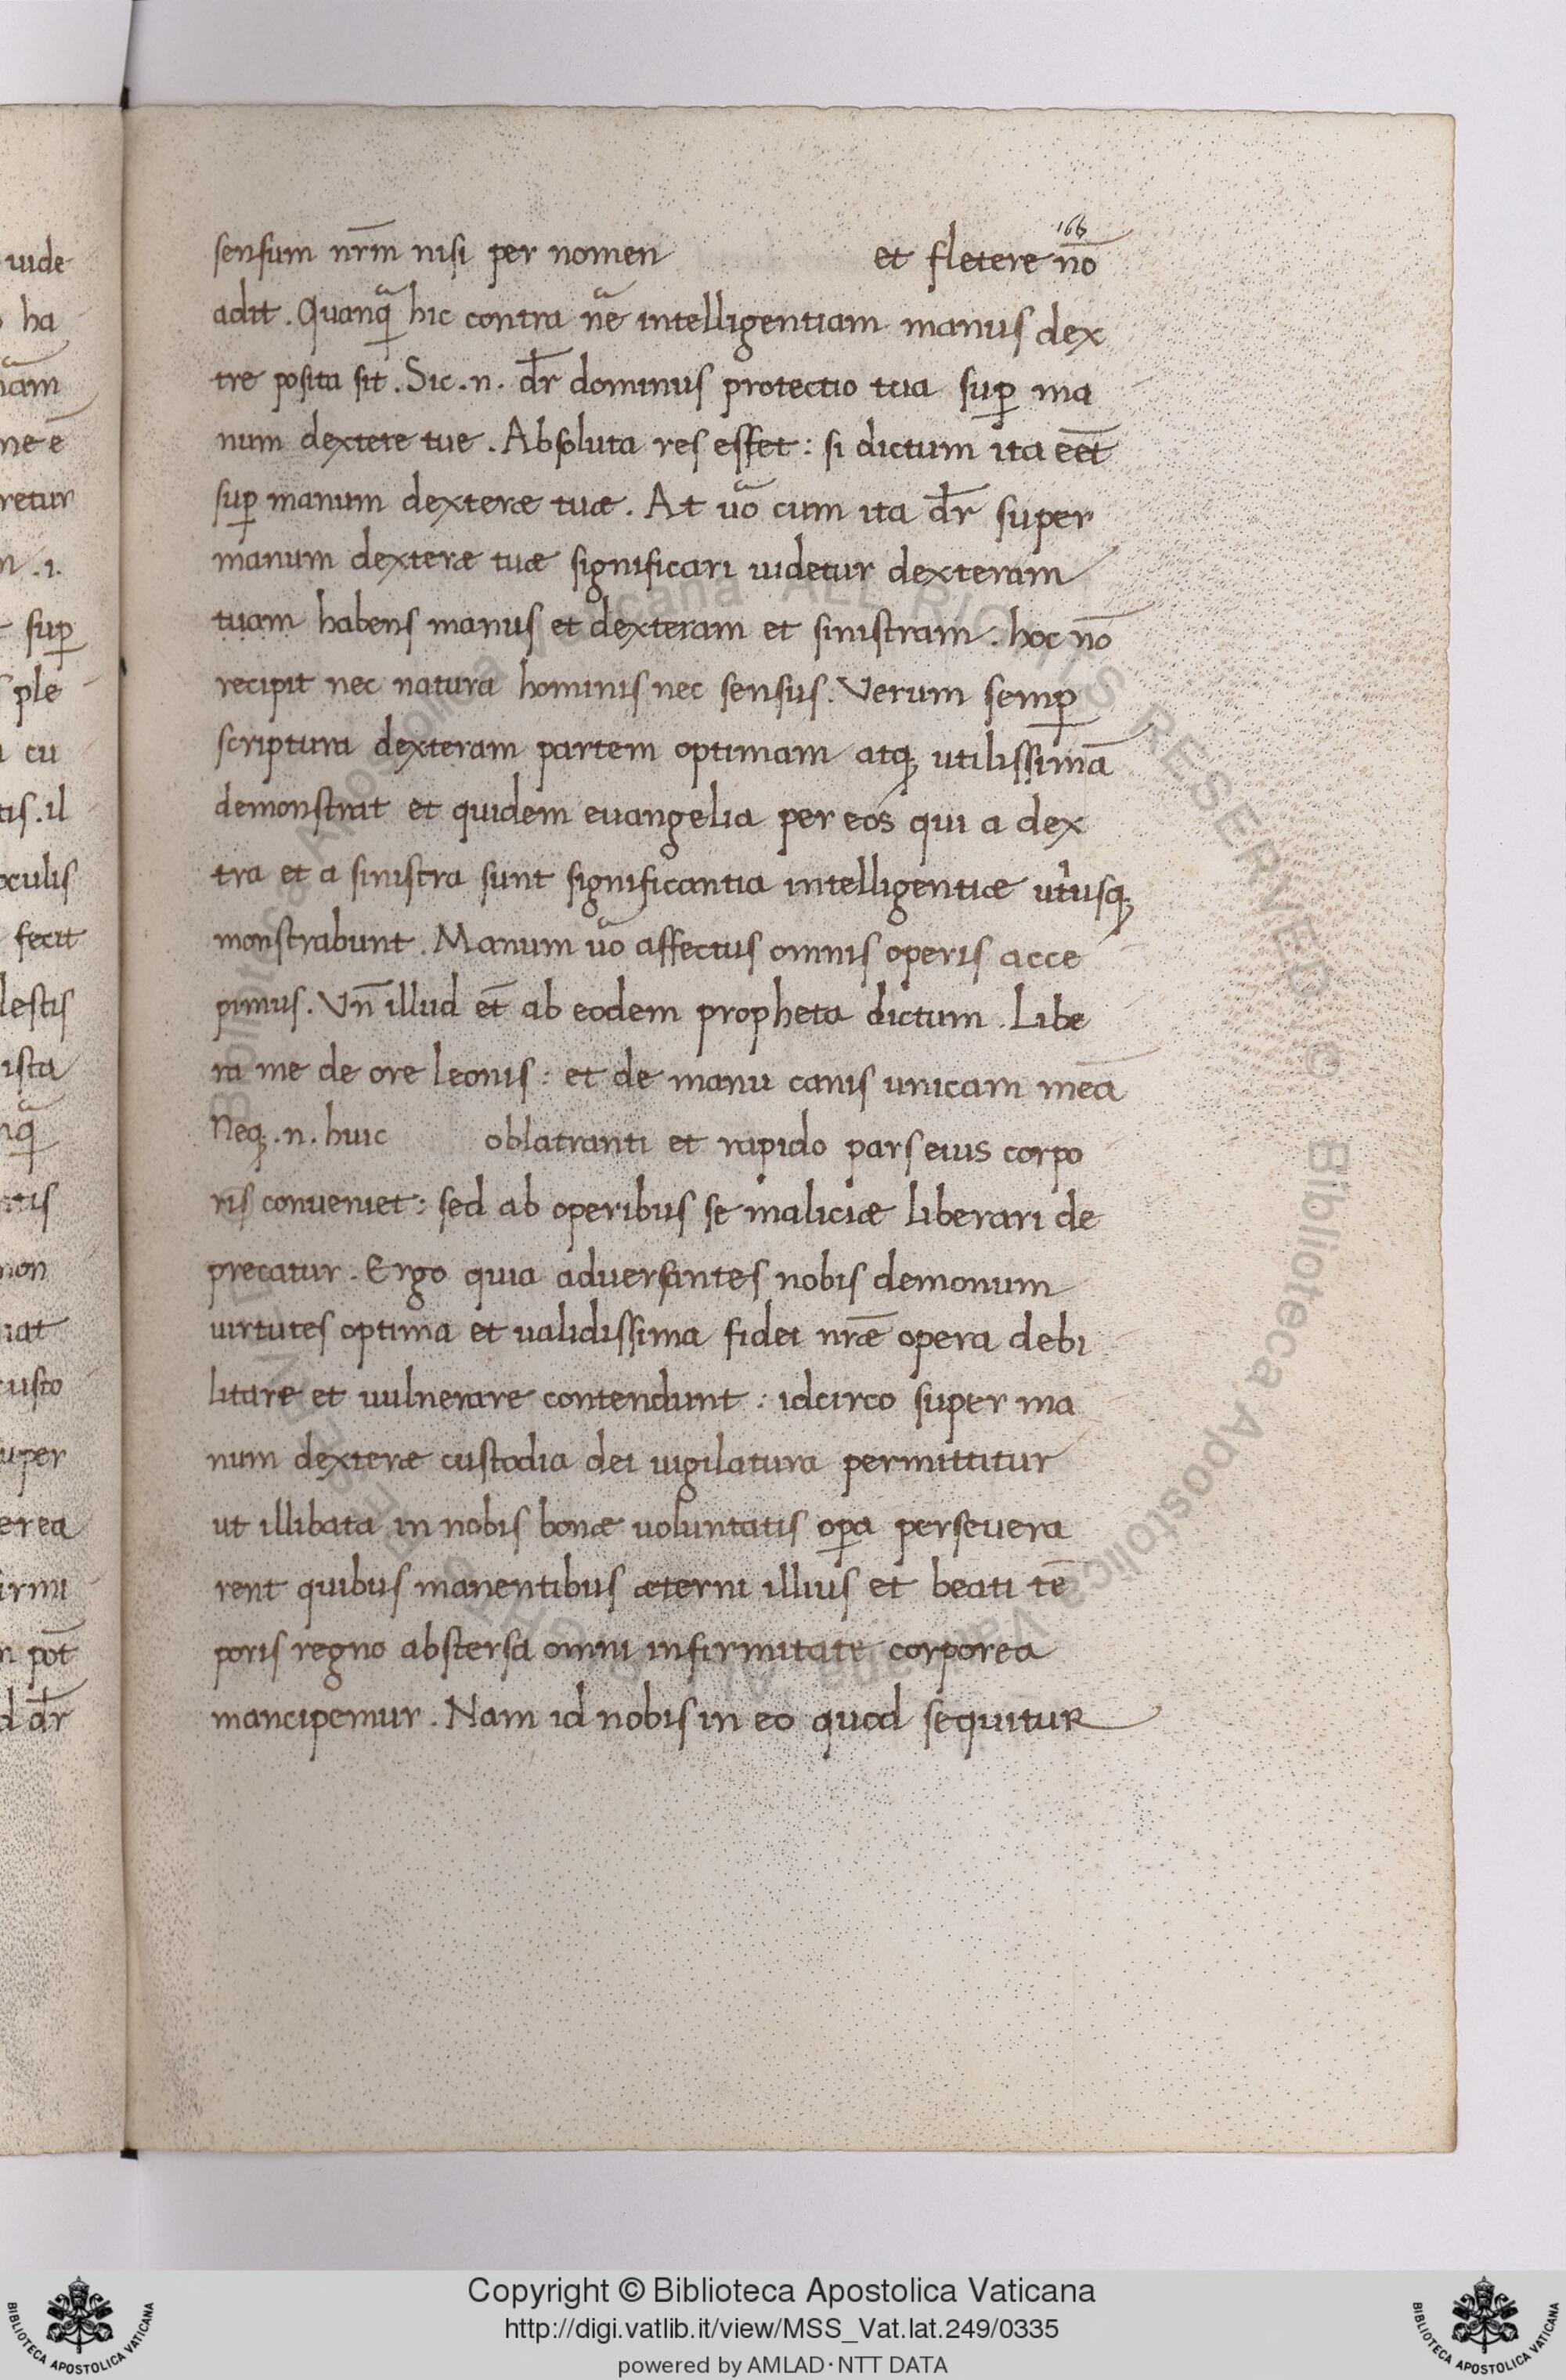 166
sensum nr̄m nisi per nomen et fletere nō
adit. Quanq̃ hic contra nẽ intelligentiam manus dex
tre posita sit. Sic .n. dr̄ dominus protectio tua sup̱ ma
num dextere tue. Absoluta res esset: si dictum ita eēt
sup̱ manum dexteræ tuæ. At uõ cum ita dr̄ super
manum dexteræ tuæ significari uidetur dexteram
tuam habens manus et dexteram et sinistram. hoc nō
recipit nec natura hominis nec sensus. Verum semp̱
scriptura dexteram partem optimam atq; utilissimā
demonstrat et quidem euangelia per eos qui a dex
tra et a sinistra sunt significantia intelligentiæ utriusq;
monstrabunt. Manum uõ affectus omnis operis acce
pimus. Vn̄ illud et̄ ab eodem propheta dictum. Libe
ra me de ore leonis: et de manu canis unicam meā
Neq; .n. huic oblatranti et rapido pars eius corpo
ris conueniet: sed ab operibus se maliciæ liberari de
precatur. Ergo quia aduersantes nobis demonum
uirtutes optima et ualidissima fidei nr̄æ opera debi
litare et uulnerare contendunt: idcirco super ma
num dexteræ custodia dei uigilatura permittitur
ut illibata in nobis bonæ uoluntatis op̱a perseuera
rent quibus manentibus æterni illius et beati tē
poris regno abstersa omni infirmitate corporea
mancipemur. Nam id nobis in eo quod sequitur
uide
ha
ñam
ne ē
retur
.i.
sup̱
ple
cu
tis. il
oculis
fecit
lestis
ista
nq̃
non
custo
uper
erea
irmi
pot̄
d dr̄
Copyright © Biblioteca Apostolica Vaticana
http://digi.vatlib.it/view/MSS_Vat.lat.249/0335
powered by AMLAD·NTT DATA
BIBLIOTECA APOSTOLICA VATICANA
BIBLIOTECA APOSTOLICA VATICANA